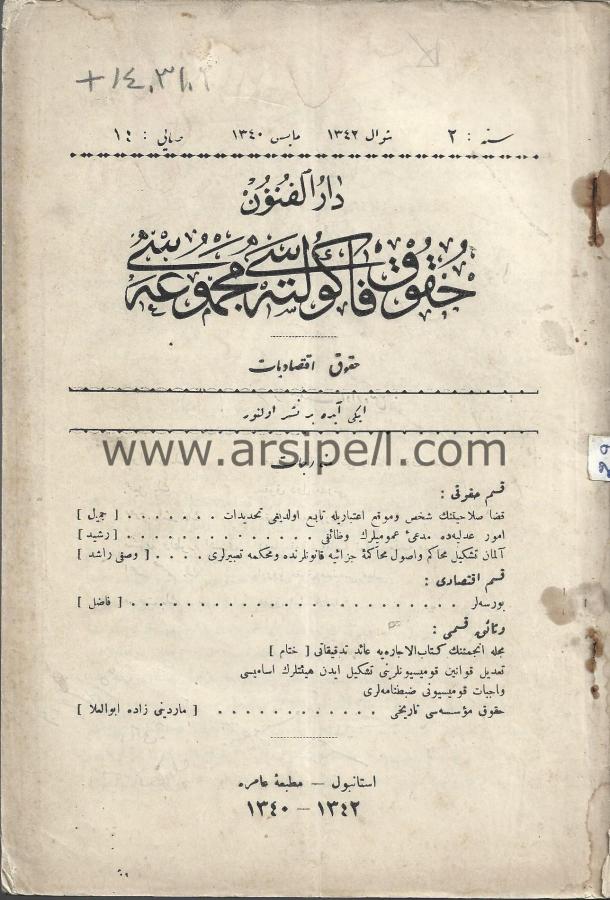 +١٤,٣١,٢
سنه : ٢ شوال ١٣٤٢ مايس ١٣٤٠ صايى : ١٤
دار الفنون
حقوق فاكولته سى مجموعه سى
حقوق اقتصاديات
ايكى آيده بر نشر اولنور
www.arsipell.com
قسم حقوقى :
قضا صلاحيتنك شخص وموقع اعتباريله تابع اولديغى تحديدات . . . . . . . [ جميل ]
امور عدليه‌ده مدعئ عموميلرك وظائفى . . . . . . . . . . . . . . [ رشيد ]
آلمان تشكيل محاكم واصول محاكمهٔ جزائيه قانونلرنده ومحكمه تعبيرلرى . . . . [ وصفى راشد ]
قسم اقتصادى :
بورسه‌لر . . . . . . . . . . . . . . . . . . . . . . . [ فاضل ]
وثائق قسمى :
مجله انجمننك كتاب الاجاره‌يه عائد تدقيقاتى [ ختام ]
تعديل قوانين قوميسيونلرينى تشكيل ايدن هيئتلرك اساميسى
واجبات قوميسيونى ضبطنامه‌لرى
حقوق مؤسسه‌سى تاريخى . . . . . . . . . . . . [ ماردينى زاده ابوالعلا ]
استانبول — مطبعهٔ عامره
١٣٤٢ — ١٣٤٠